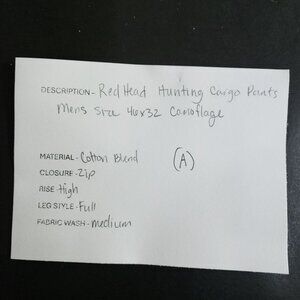 DESCRIPTION- RedHead Hunting Cargo Pants
Mens Size 46x32 Camoflage
MATERIAL- Cotton Blend
(A)
CLOSURE-Zip
RISE-High
LEG STYLE-Full
FABRIC WASH-medium